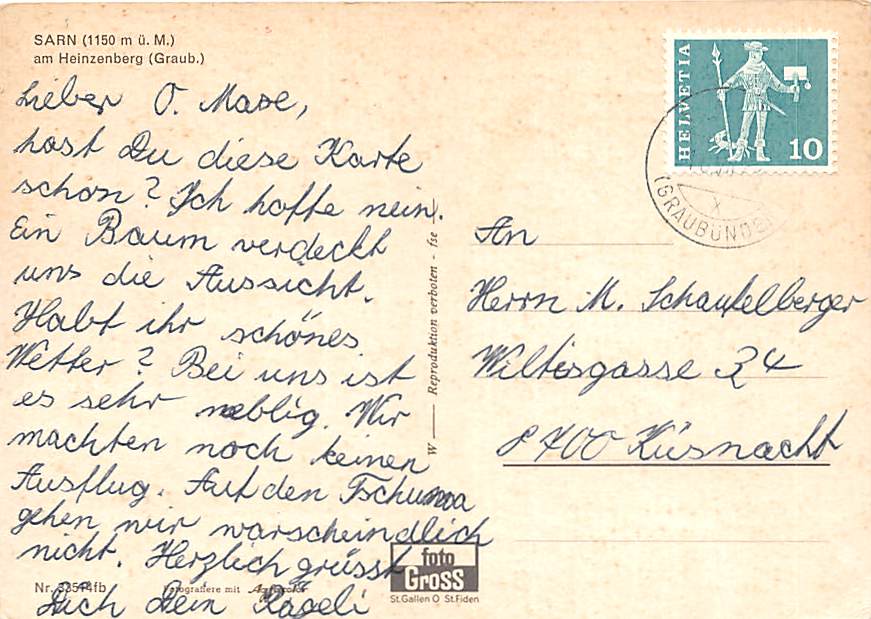 SARN (1150 m ü. M.)
am Heinzenberg (Graub.)
Lieber O. Maxe,
hast Du diese Karte
schon? Ich hoffe nein.
Ein Baum verdeckt
uns die Aussicht.
Habt ihr schönes
Wetter? Bei uns ist
es sehr neblig. Wir
machten noch keinen
Ausflug. Auf den Tschuma
gehen wir warscheindlich
nicht. Herzlich grüsst
Dich Dein Rägeli
Nr. 33514fb
Fotografiere mit Agfacolor
W — Reproduktion verboten - fse
foto
Gross
St.Gallen O St.Fiden
HELVETIA
10
(GRAUBÜNDEN)
An
Herrn M. Schaufelberger
Wiltisgasse 34
8700 Küsnacht